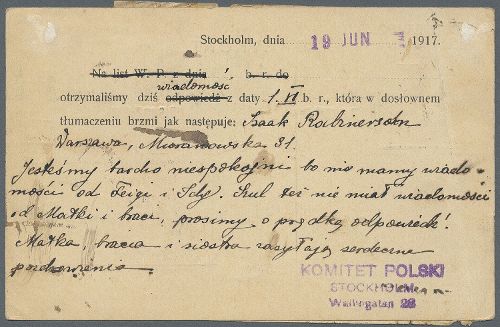 Stockholm, dnia 19 JUN 1917.
Na list W. P. z dnia b. r. do
wiadomość
otrzymaliśmy dziś odpowiedź z daty 1. VI b. r., która w dosłownem
tłumaczeniu brzmi jak następuje: Isaak Rabinersohn
Warszawa, Muranowska 31.
Jesteśmy bardzo niespokojni bo nie mamy wiado-
mości od Feigi i Szul też nie miał wiadomości
od Matki i braci, prosimy o prędką odpowiedź!
Matka, bracia i siostra zasyłają serdeczne
pozdrowienia
KOMITET POLSKI
STOCKHOLM
Wallingatan 28